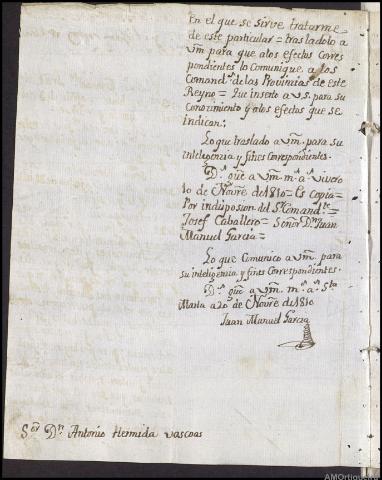 En el que se sirve tratarme
de este particular = trasladolo a
vm para que a los efectos corres
pondientes lo Comunique a los
Comand.s de las Provincias de este
Reyno = Que inserto a v.s. para su
conocimiento y a los efectos que se
indican:
Lo que traslado a vm. para su
inteligencia y fines correspondientes.
D.s gûe a vm. m.s a.s Vivero
10 de Novre de 1810 = Es Copia =
Por indisposion del Sr Comand.te =
Josef Caballero = Señor Dn Juan
Manuel Garcia =
Lo que Comunico a vm. para
su inteligencia y fines Correspondientes.
D.s gûe a vm. m.s a.s Sta
Marta a 20 de Novre de 1810
Juan Manuel Garcia
Sor Dn Antonio Hermida Vascoas
AMOrtigueira